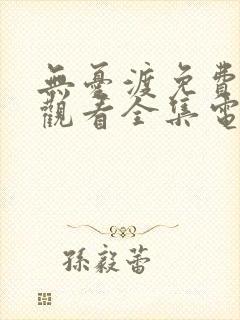 無憂渡免費
觀看全集電
孫毅蕾